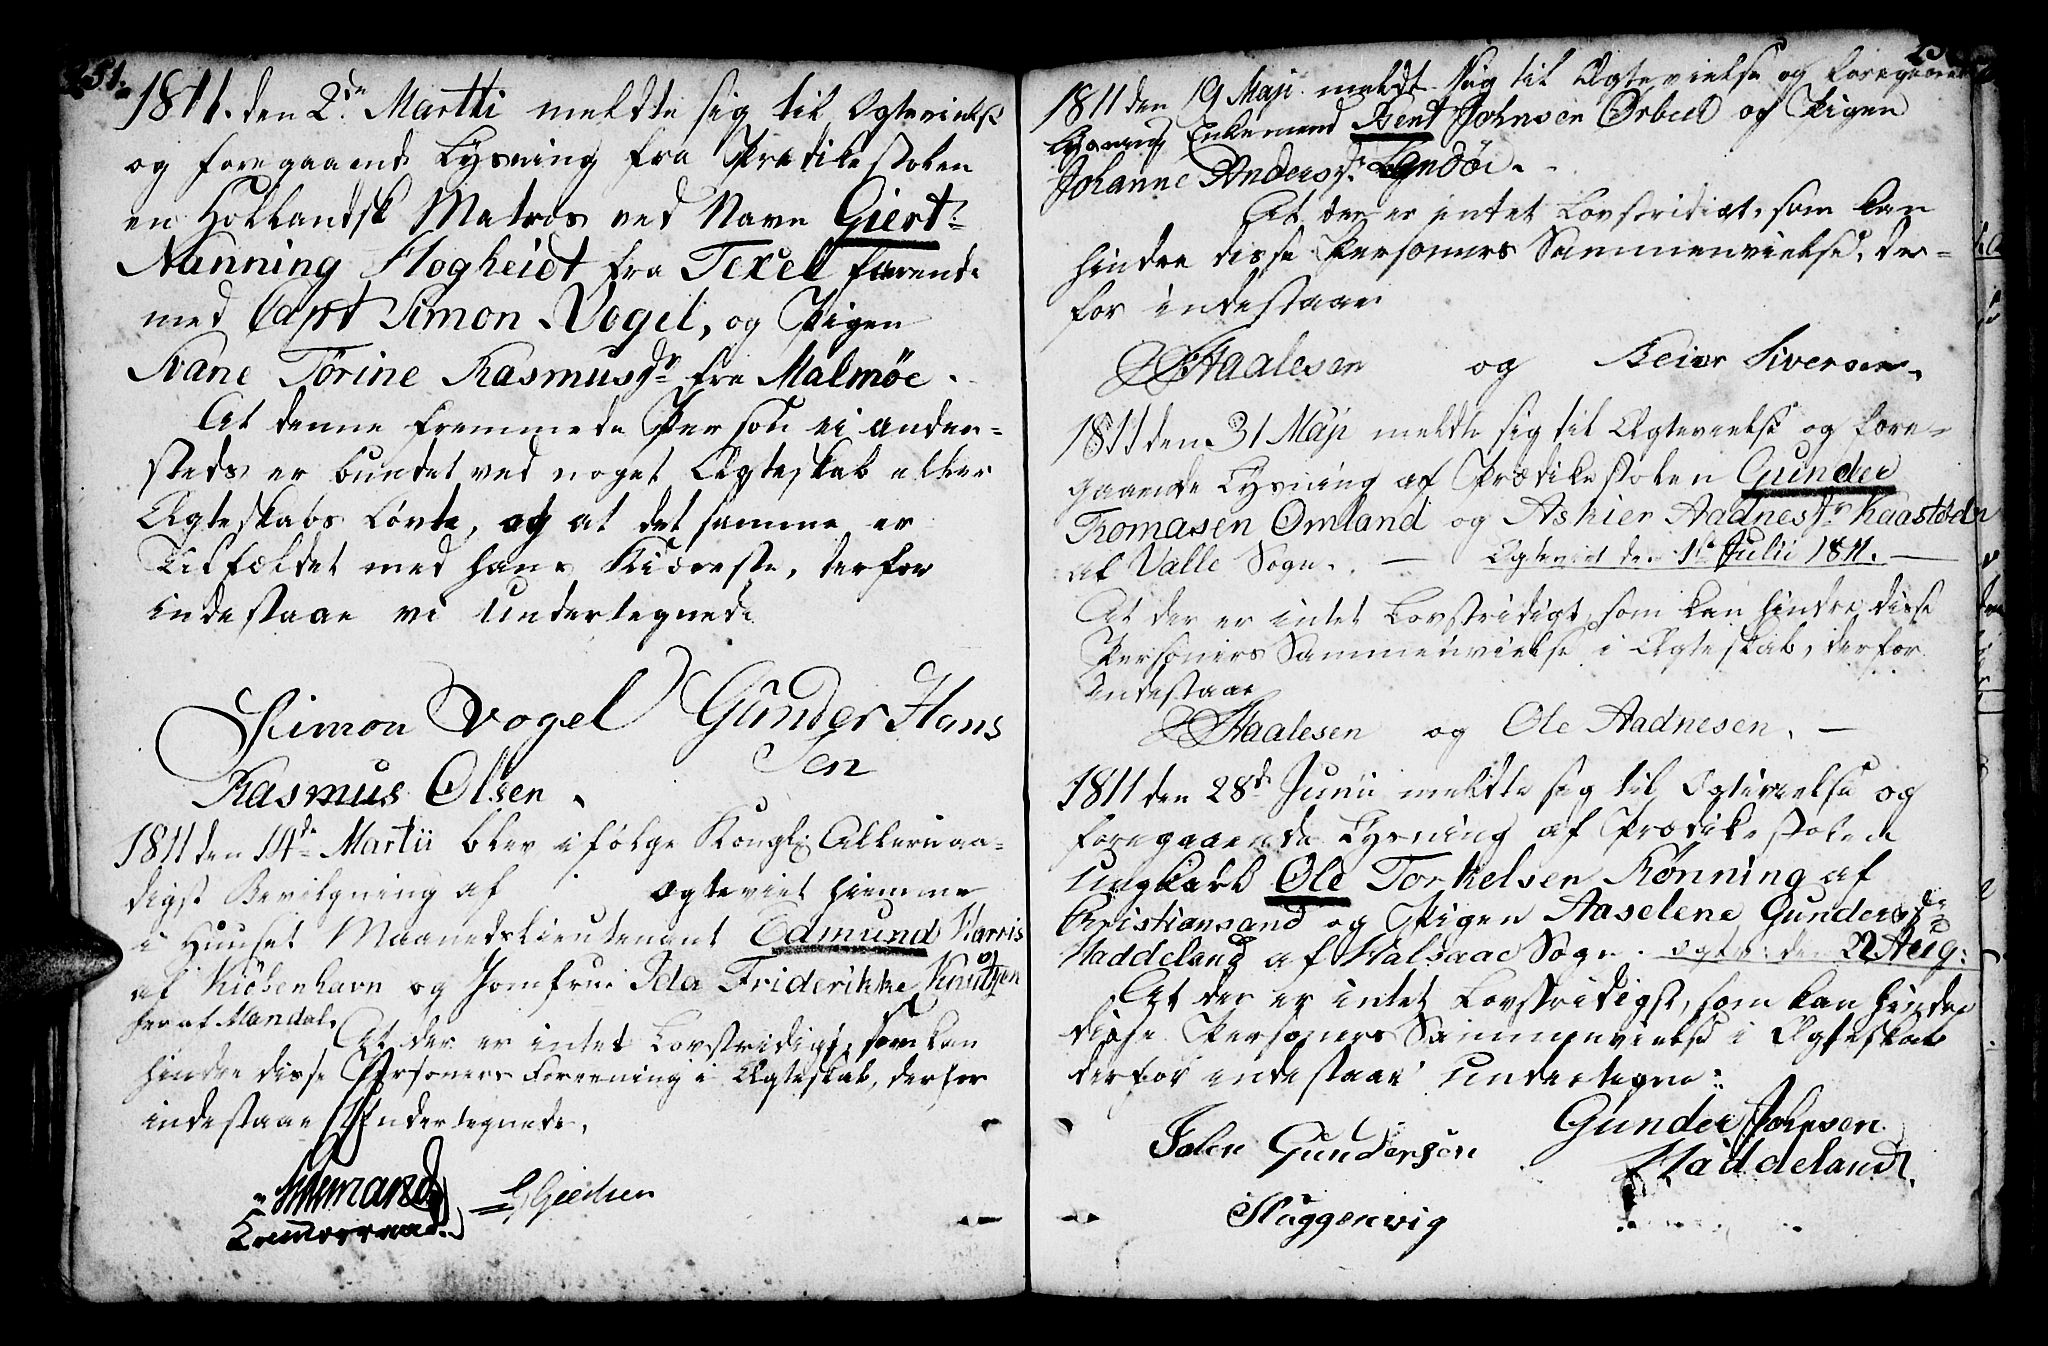 251.
1811. den 2de Martii meldte sig til Ægtevielse
og foregaaende Lysning fra Prædikestolen
en Hollandsk Matros ved Navn Giert
Nanning Hogheidt fra Texel farende
med Capt Simon Vogel, og Pigen
Ane Torine Rasmusdr fra Malmøe.
At denne fremmede Person ei anden-
steds er bundet ved noget Ægteskab eller
Ægteskabs Løvte, og at det samme er
Tilfældet med hans Kiæreste, derfor
indestaae vi Undertegnede
Simon Vogel Gunder Hans
Sen
Rasmus Olsen.
1811 den 14de Martii blev ifølge Kongl: Allernaa-
digst Bevilgning af ægteviet hiemme
i Huuset Maanedslieutenant Edmund Harris
af Kiöbenhavn og Jomfrue Ida Friderikke Knutzen
her af Mandal.
At der er intet Lovstridigt, som kan
hindre disse Personers Foreening i Ægteskab, derfor
indestaae Undertegnede.
Kammerraad.
1811 den 19 Maji meldt sig til Ægtevielse og foregaaende
Lysning Enkemand Bent Johnsen Orbeed og Pigen
Johanne Andersdr. Landöe.
At der er intet Lovstridigt, som kan
hindre disse Personers Sammenvielse, der-
for indestaaer
Haalesen og Reier Siversen.
1811 den 31 Maji meldte sig til Ægtevielse og fore-
gaaende Lysning af Prædikestolen Gunder
Tomasen Omland og Askier Aadnesdr Kaastødn
af Valle Sogn. — Ægteviet den 1ste Julii 1811. —
At der er intet Lovstridigt, som kan hindre disse
Personers Sammenvielse i Ægteskab, derfor
Indestaae
Haalesen og Ole Aadnesen. —
1811 den 28de Junii meldte sig til Ægtevielse og
foregaaende Lysning af Prædikestolen
Ungkarl Ole Torkelsen Rønning af
Christiansand og Pigen Aaselene Gundersdr
Haddeland af Halsaae Sogn. ægtev: den 22 Aug:
At der er intet Lovstridigt, som kan hindre
disse Personers Sammenvielse i Ægteskab
derfor indestaae Undertegne:
John Gundersøn Gunder Johnsen
Haddeland.
Skuggenvig